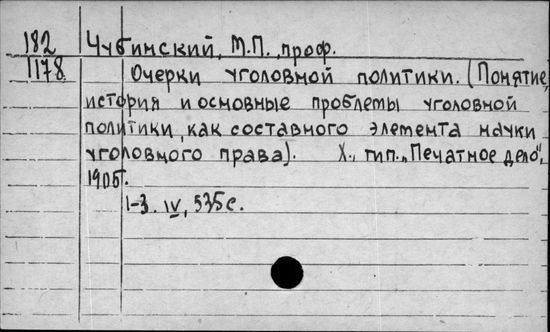 182 Чубинский, М.П., проф.
1178 Очерки уголовной политики. (Понятие,
история и основные проблемы уголовной
политики, как составного элемента науки
уголовного права). Х., тип. „Печатное дело",
1905г.
1-3. IV, 535с.